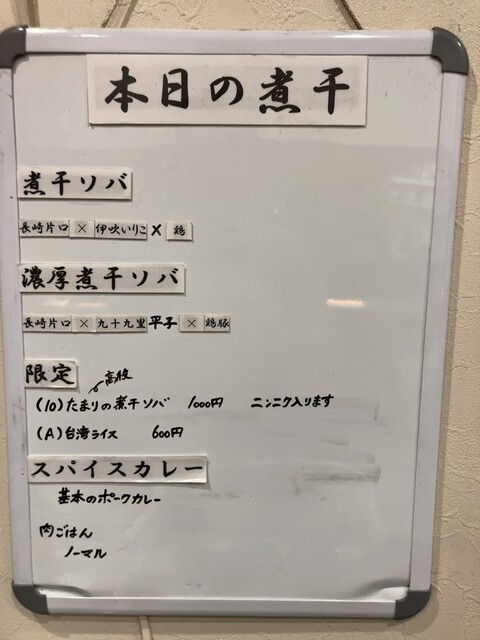 本日の煮干
煮干ソバ
長崎片口 × 伊吹いりこ × 鶏
濃厚煮干ソバ
長崎片口 × 九十九里 平子 × 鶏豚
限定
高級
(10) たまりの煮干ソバ 1000円 ニンニク入ります
(A) 台湾ライス 600円
スパイスカレー
基本のポークカレー
肉ごはん
ノーマル